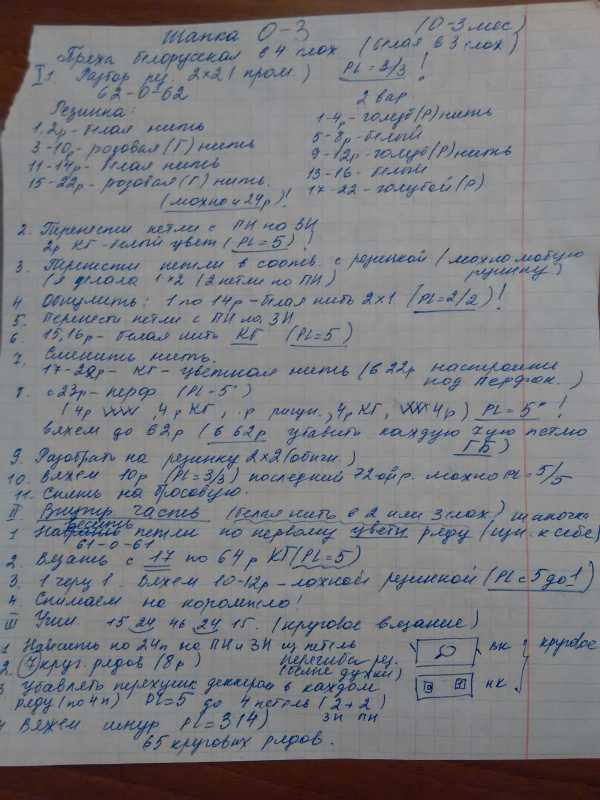 Шапка 0-3 (0-3 мес)
Пряха белорусская в 4 слож (белая в 3 слож)
I 1. Разбор рез. 2x2 (пром.) PL=3/3 !
62-0-62
Резинка: 2 вар
1,2р - белая нить 1-4р - голуб (Р) нить
3-10р - розовая (Г) нить 5-8р - белый
11-14р - белая нить 9-12р - голуб (Р) нить
15-22р - розовая (Г) нить. 13-16 - белый
(можно и 24р)! 17-22 - голубой (Р)
2. Перенести петли с ПН на ЗН
2р КГ - белый цвет (PL=5)!
3. Перенести петли в соотв. с резинкой (можно любую
(я делала 1x2 (2 петли по ПН) резинку)
4. Обнулить: 1 по 14р - белая нить 2x1 (PL=2/2)!
5. Перенести петли с ПН на ЗН
6. 15,16р - белая нить КГ (PL=5)
7. Сменить нить.
17-22р - КГ - цветная нить (в 22р настроить
под перфок.)
8. с 23р - перф (PL-5°)
(4р , 4р КГ, р рисун., 4р КГ, 4р) PL=5° !
вяжем до 62р (в 62р убавить каждую 7ую петлю
ГБ)
9. Разобрать на резинку 2x2 (обычн.)
10. Вяжем 10р (PL=3/3) последний 72ой р. можно PL=5/5
11. Снять на бросовую.
II Внутр. часть (белая нить в 2 или 3 слож) шапочка
1 петли по первому цветн ряду (изн. к себе)
61-0-61
2. Вязать с 17 по 64р КГ (PL=5)
3. 1 через 1. Вяжем 10-12р - ложной резинкой (PL с 5 до 1)
4. Снимаем на коромысло!
III Уши. 15 24 46 24 15. (круговое вязание)
1 Навесить по 24п на ПН и ЗН из петель ВК круговое
2. (7) круг. рядов (8р) перегиба рез.
(белые дужки) НК
3 убавлять перехущик деккером в каждом
ряду (по 4п) PL=5 до 4 петель (2+2)
ЗН ПН
4 Вяжем шнур PL=3(4)
65 круговых рядов.